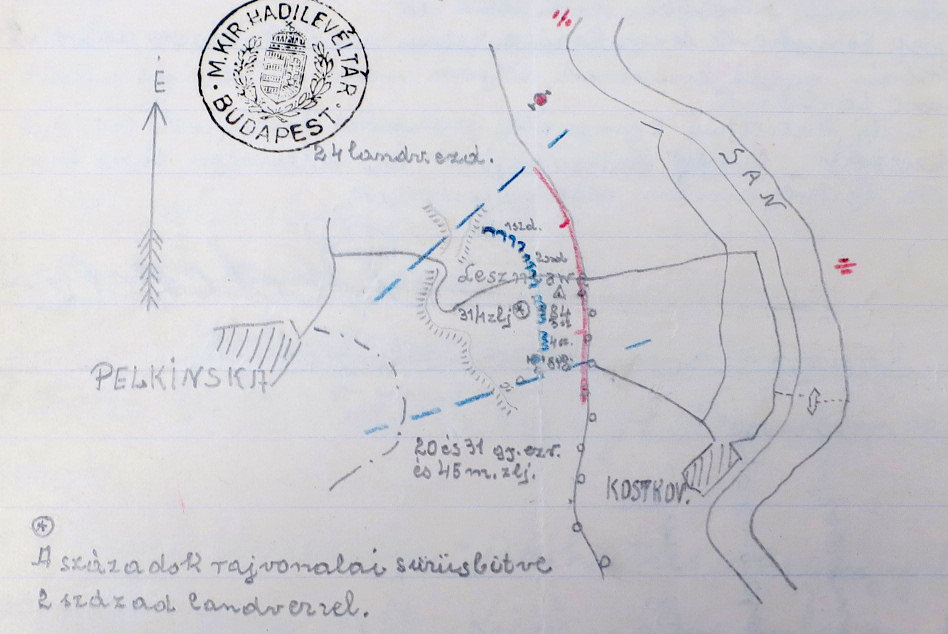 M. KIR. HADILEVÉLTÁR
· BUDAPEST ·
É
24 landv. ezd.
SAN
1 szd.
2 szd
Lesznowa
31/1 zlj
84
PELKINSKA
20 és 31 gy. ezr.
és 45 m. zlj.
KOSTKOV.
A századok rajvonalai sürüsbitve
2 század landverrel.